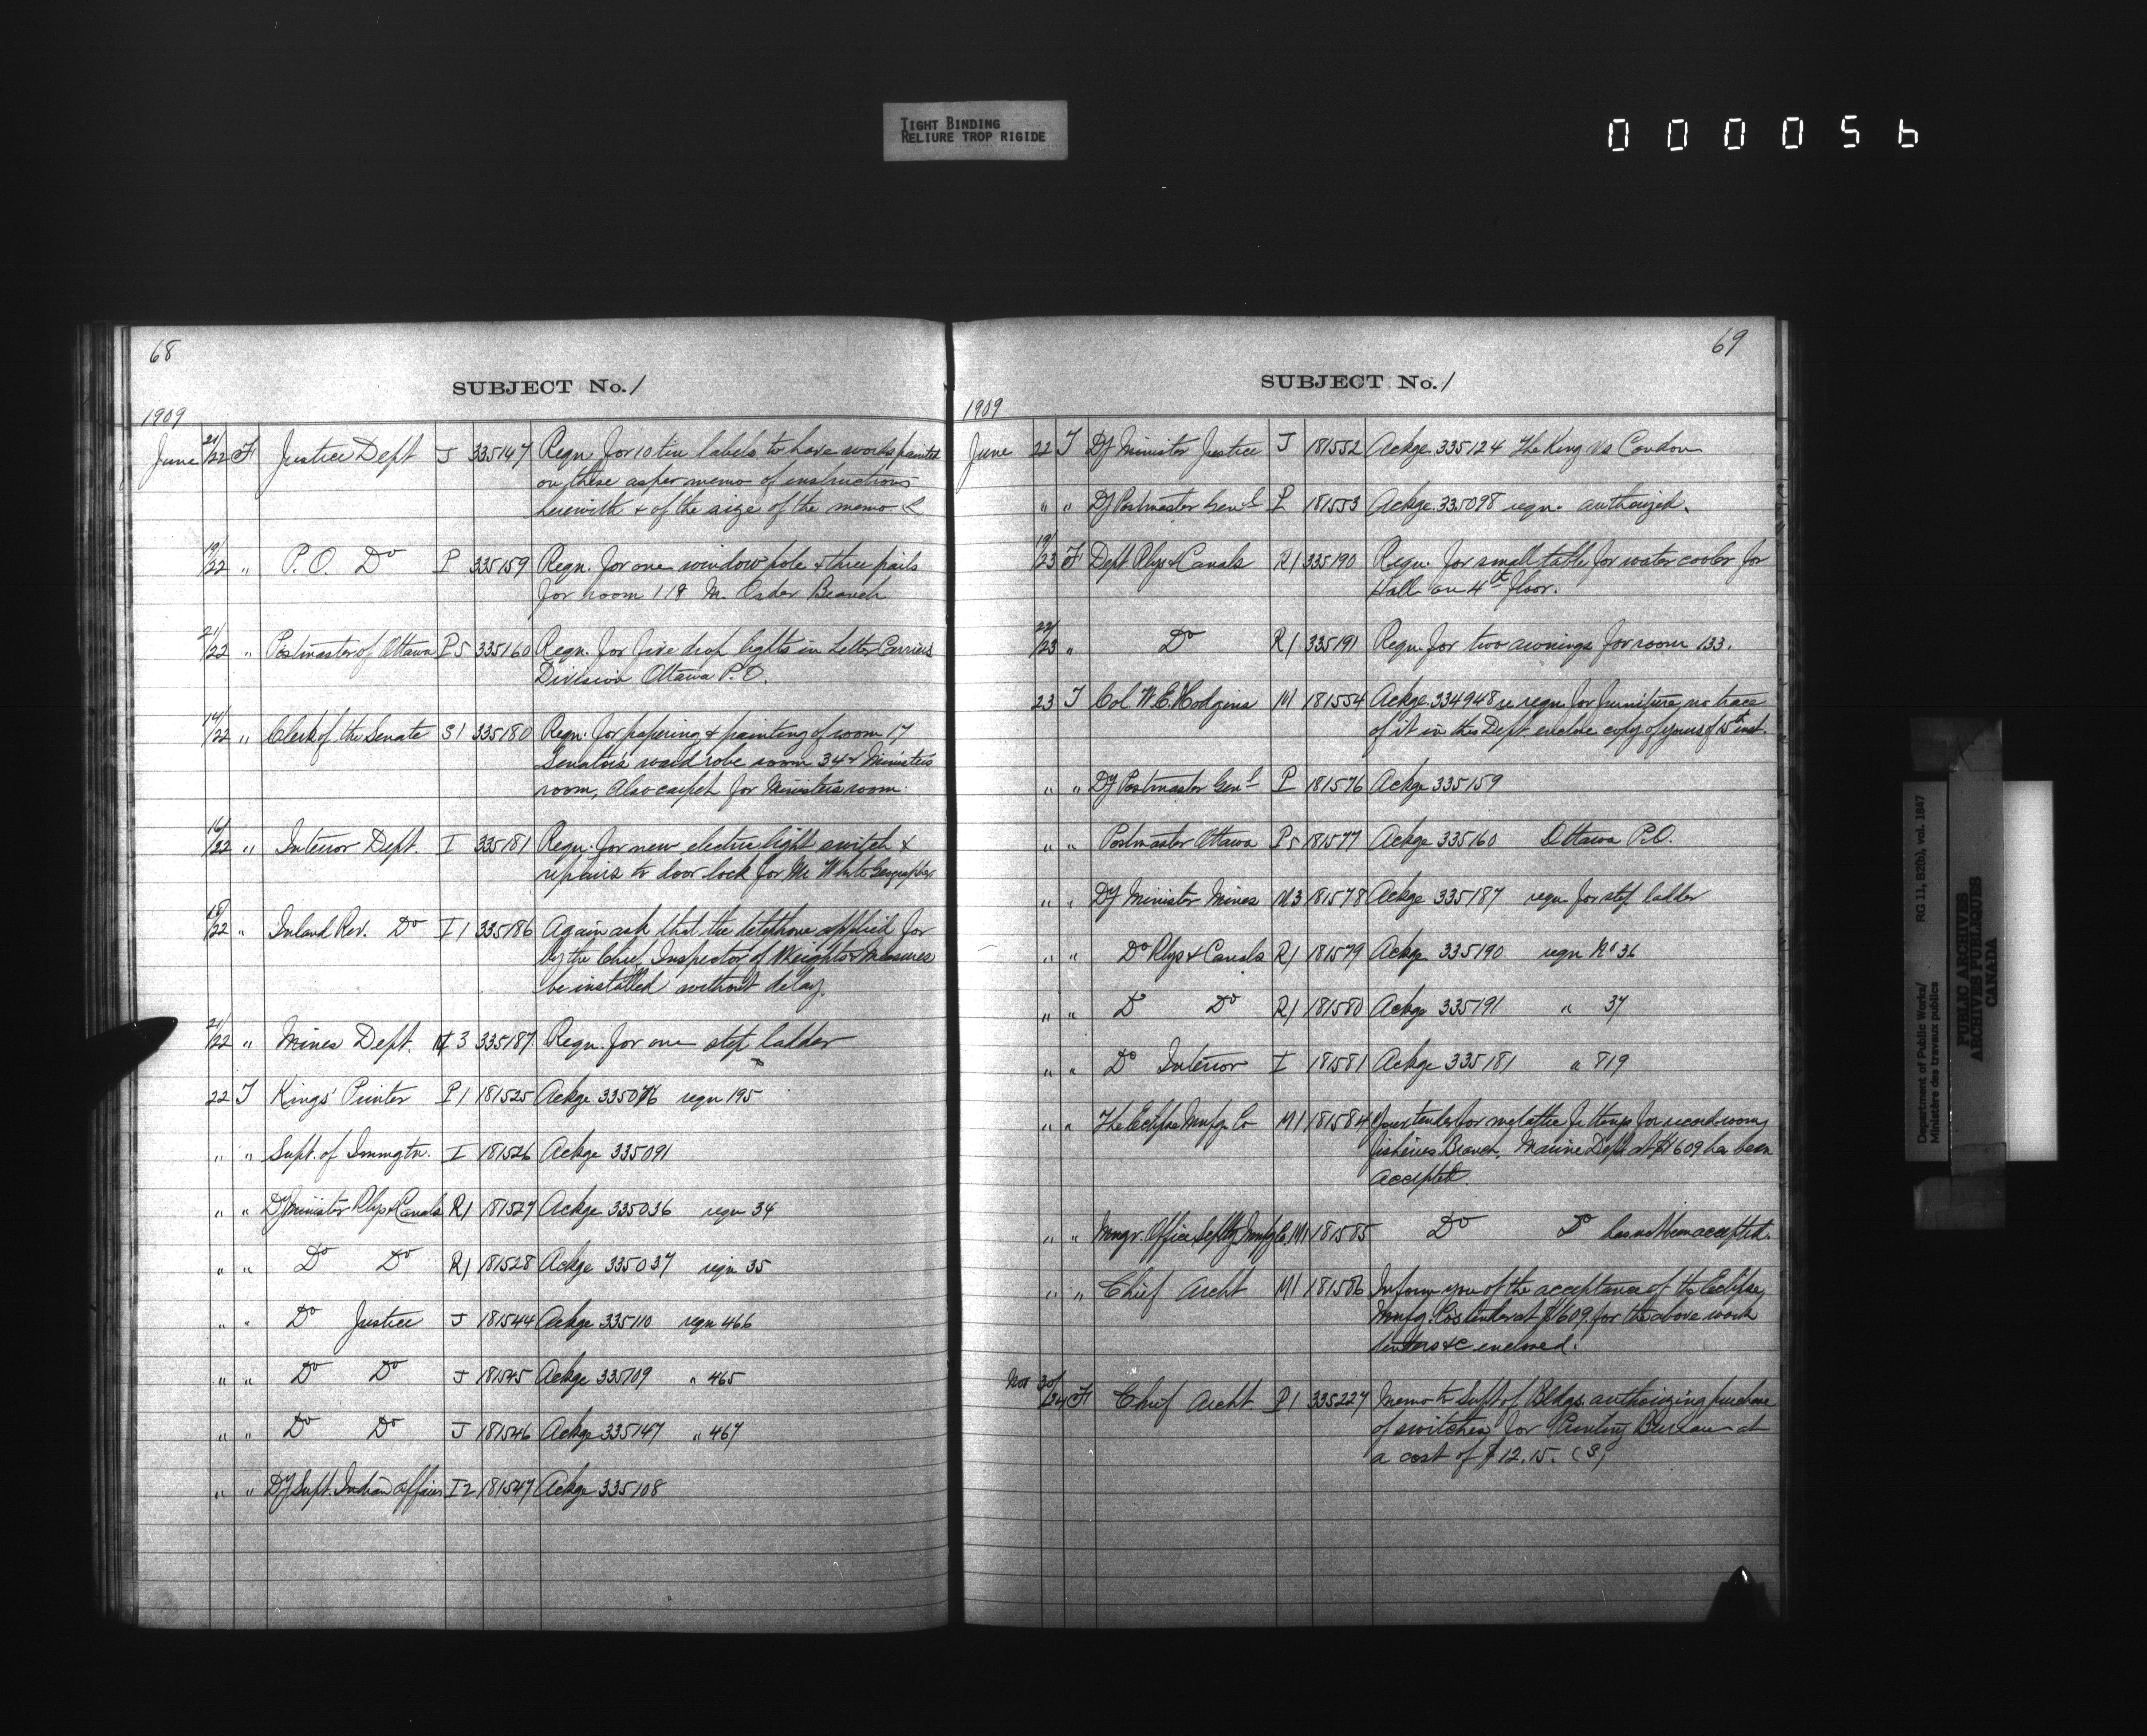 TIGHT BINDING
RELIURE TROP RIGIDE
000056
68
SUBJECT No. 1
1909
June 21/22 F Justice Dept J 335147 Reqn. for 10 tin labels to have works painted
on these as per memo of instructions
herewith & of the size of the memo
19/22 " P.O. Do P 335159 Reqn. for one window pole & three pails
for room 118 M. Order Branch
21/22 " Postmaster of Ottawa P5 335160 Reqn. for five drop lights in Letter Carriers
Division Ottawa P.O.
14/22 " Clerk of the Senate S1 335180 Reqn. for papering & painting of room 17
Senators wardrobe room 34 & Ministers
room, Also carpet for Ministers room.
16/22 " Interior Dept. I 335181 Reqn. for new electric light switch &
repairs to door lock for Mr White Geographer
18/22 " Inland Rev. Do I1 335186 Again ask that the telephone applied for
by the Chief Inspector of Weights & Measures
be installed without delay.
21/22 " Mines Dept. M3 335187 Reqn. for one step ladder
22 T Kings' Printer P1 181525 Ackge 335076 reqn 195
" " Supt. of Immgtn. I 181526 Ackge 335091
" " Dy Minister Rlys & Canals R1 181527 Ackge 335036 reqn 34
" " Do Do R1 181528 Ackge 335037 reqn 35
" " Do Justice J 181544 Ackge 335110 reqn 466
" " Do Do J 181545 Ackge 335109 " 465
" " Do Do J 181546 Ackge 335147 " 467
" " Dy Supt. Indian Affairs I2 181547 Ackge 335108
69
SUBJECT No. 1
1909
June 22 T Dy Minister Justice J 181552 Ackge. 335124 The King vs Condon
" " Dy Postmaster Genl P 181553 Ackge. 335098 reqn. authorized.
19/23 F Dept Rlys & Canals R1 335190 Reqn. for small table for water cooler for
Hall on 4th floor.
22/23 " Do R1 335191 Reqn. for two awnings for room 133.
23 T Col. W.E. Hodgins M 181554 Ackge. 334948 re reqn. for furniture no trace
of it in this Dept enclose copy of yours of 5th inst.
" " Dy Postmaster Genl P 181576 Ackge 335159
" " Postmaster Ottawa P5 181577 Ackge 335160 Ottawa P.O.
" " Dy Minister Mines M3 181578 Ackge 335187 reqn. for step ladder
" " Do Rlys & Canals R1 181579 Ackge 335190 reqn No 36
" " Do Do R1 181580 Ackge 335191 " 37
" " Do Interior I 181581 Ackge 335181 " 819
" " The Eclipse Mnfg. Co M1 181584 Your tender for metallic fittings for record room
Fisheries Branch, Marine Dept at $1609 has been
accepted.
" " Mngr. Office Splty Mnfg Co. M1 181585 Do Do has not been accepted.
" " Chief Archt M1 181586 Inform you of the acceptance of the Eclipse
Mnfg. Cos tender at $1609 for the above work
tenders &c enclosed.
Nov 30/24 F Chief Archt P1 335227 Memo to Supt of Bldgs. authorizing purchase
of switches for Printing Bureau at
a cost of $12.15. (S)
Department of Public Works/ RG 11, B2(b), vol. 1847
Ministère des travaux publics
PUBLIC ARCHIVES
ARCHIVES PUBLIQUES
CANADA